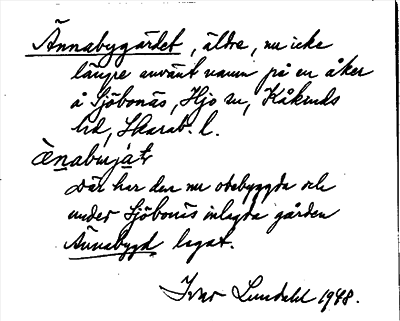 Ännabygärdet, äldre, nu icke
längre använt namn på en åker
å Sjöbonäs, Hjo sn, Kåkinds
hd, Skarab. l.
ænabyjæ̀t
Där har den nu obebyggda och
under Sjöbonäs inlagda gården
Ännabygd legat.
Ivar Lundahl 1948.